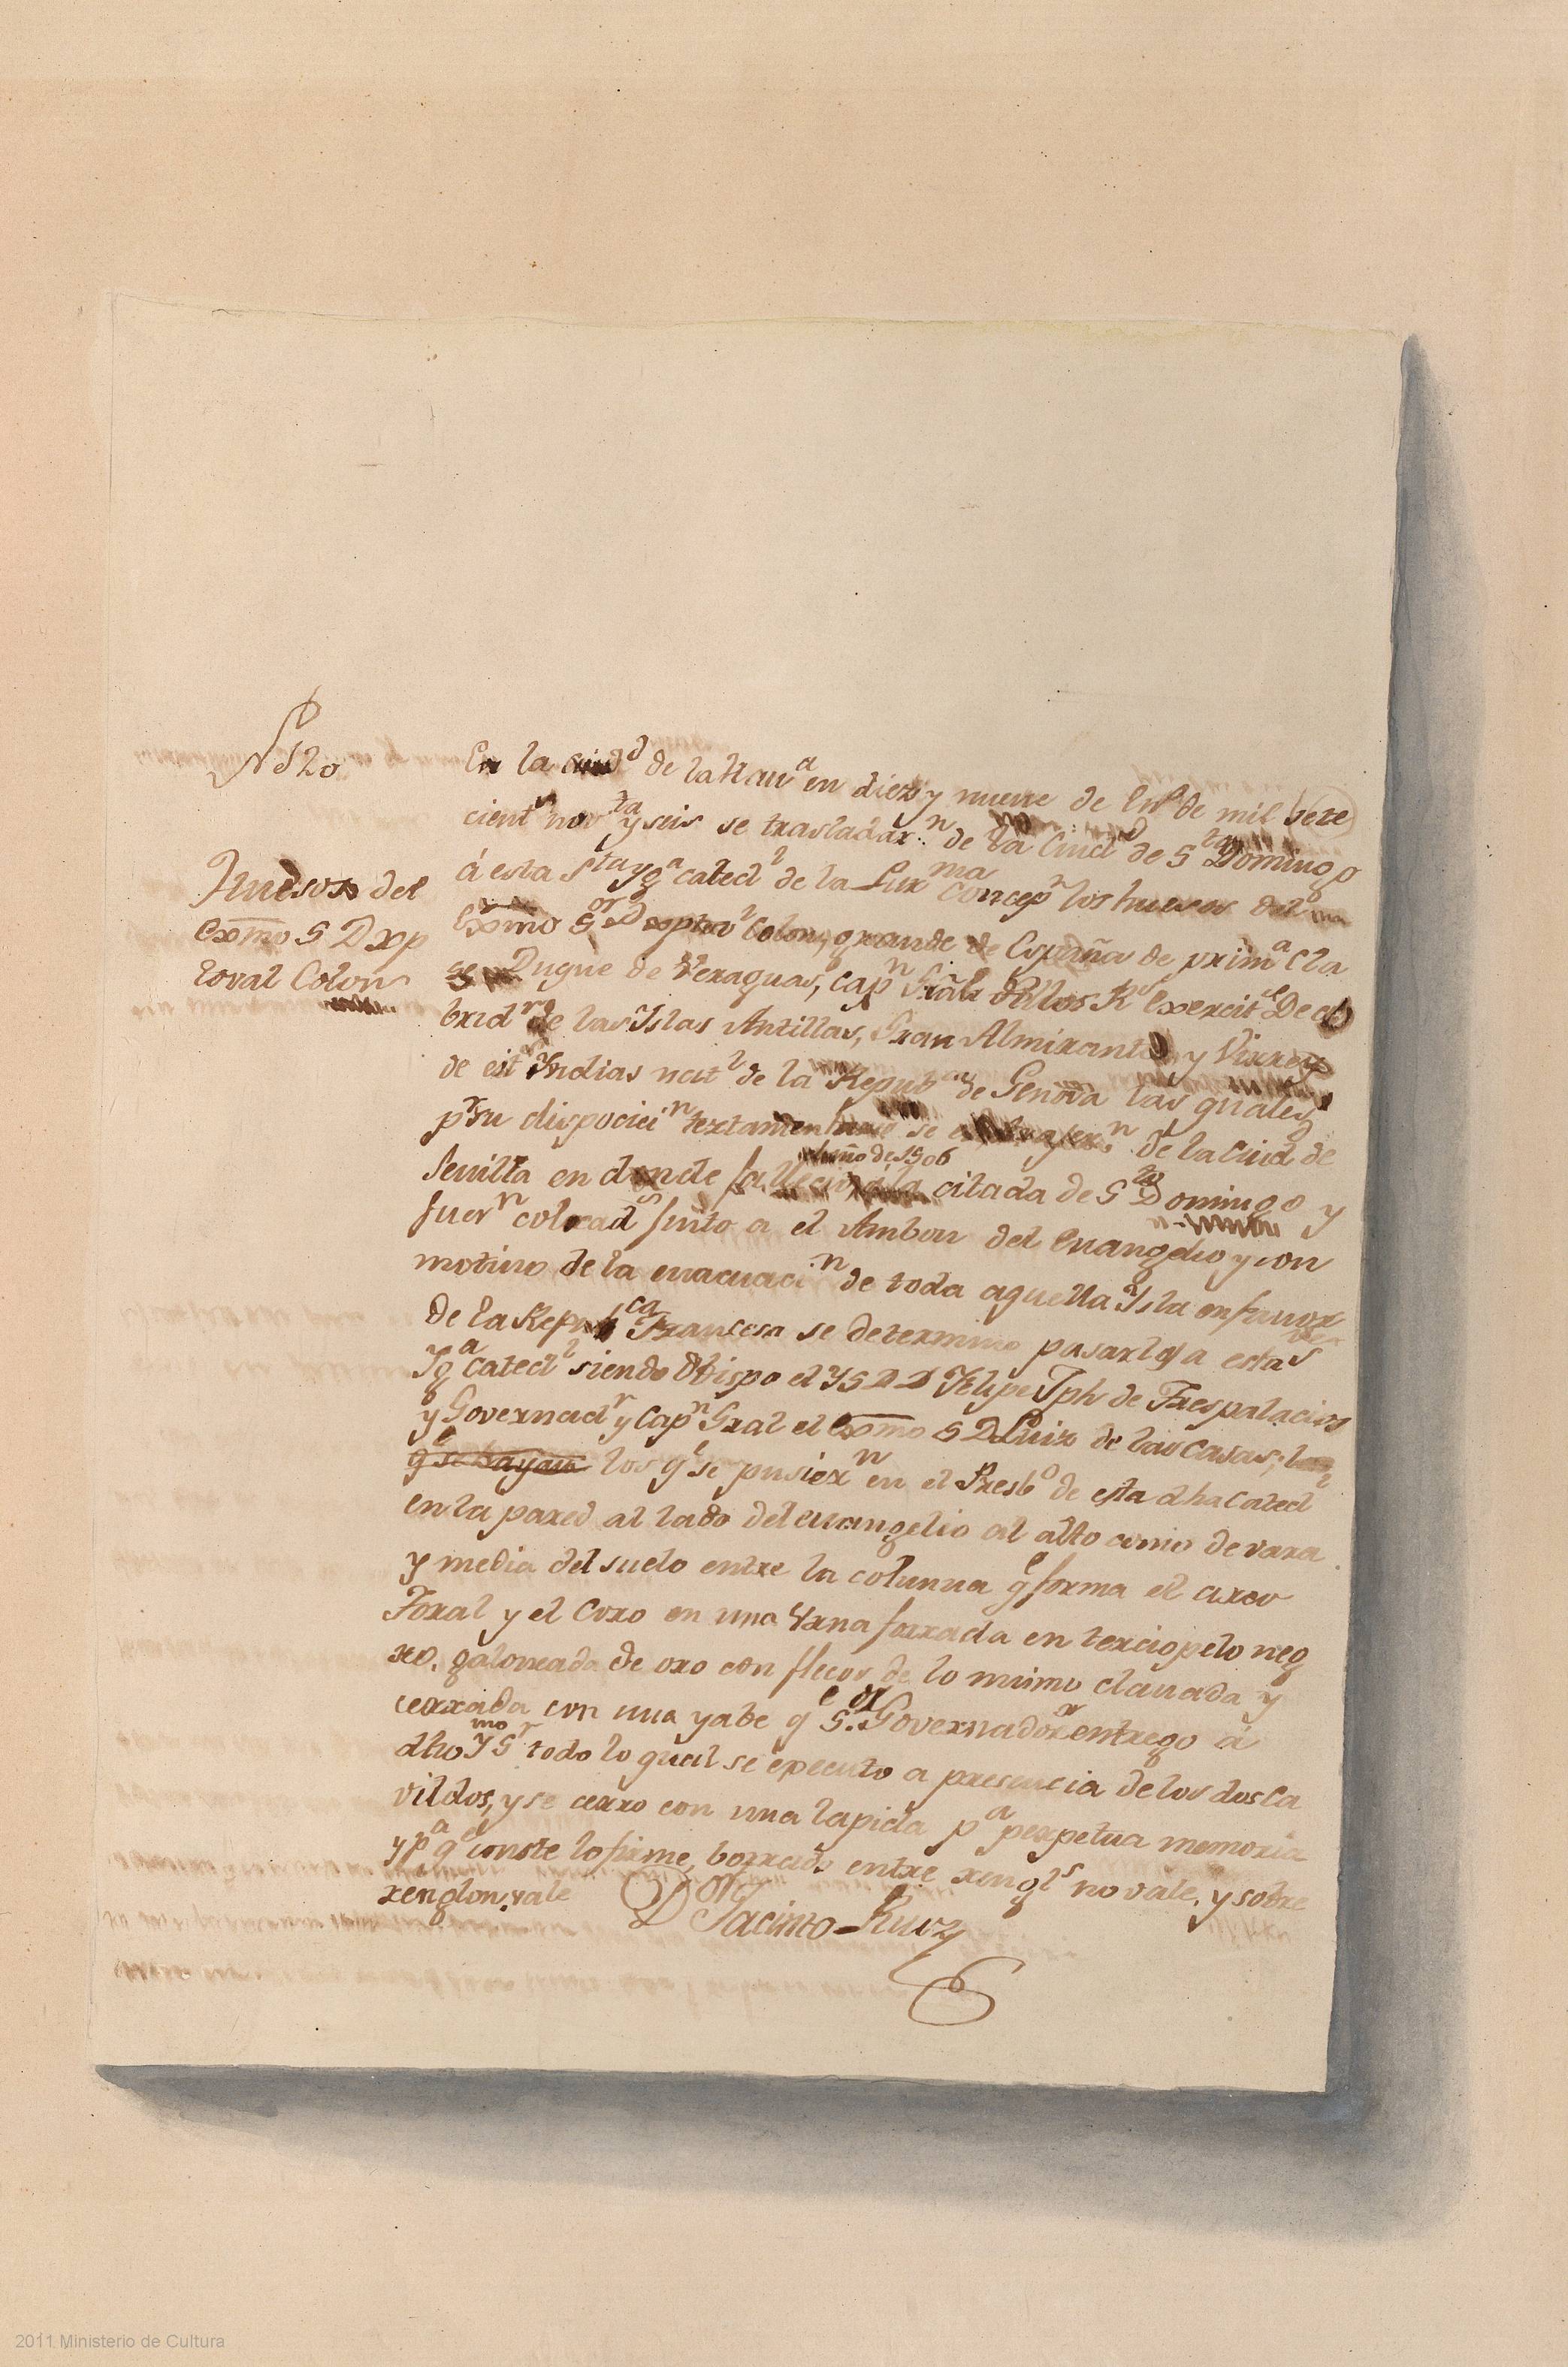 Nº 120
Huesos del
Exmo S D Xp
toval Colon
En la ciudd de la Hava en diez y nueve de Enº de mil sete
cients novta y seis se trasladarn de la Ciudd de Sto Domingo
á esta Sta Yga catedl de la Purma Concepn los huesos del
Exmo Sor D Xptovl Colon, grande de España de prima Cla
se Duque de Veraguas, Capn Gral de los Rs Exercits De
bridr de las Yslas Antillas, Gran Almirante y Virrey
de est Yndias natl de la Repubca de Genova las quales
pr su dispocicin textamentaria se de la Ciud de
año de 1506
Sevilla en donde fallecio á la citada de Sto Domingo y
fuern colocads Junto a el Ambon del Evangelio y con
motivo de la evacuacin de toda aquella Ysla en favor
de la Repubca Francesa se determino pasarlos a esta S
Yga catedl siendo Obispo el Y S D D Felipe Jph de Trespalacios
y Governadr y Capn Gral el Exmo S D Luiz de las Casas;
qe se hayan los qe se pusiern en el Presbo de esta dha Catedl
en la pared al lado del evangelio al alto como de vara
y media del suelo entre la columna qe forma el arco
Toral y el Coro en una Vrna forrada en terciopelo neg
ro, galoneada de oro con flecos de lo mismo clavada y
cerrada con una yabe qe S.or Governador entrego á
dho Ymo Sr todo lo qual se executo a presencia de los dos Ca
vildos, y se cerro con una lapida pa perpetua memoria
y pa qe conste lo firme, borrado entre rengls no vale, y sobre
renglon, vale
Dor Jacinto Ruiz
2011 Ministerio de Cultura